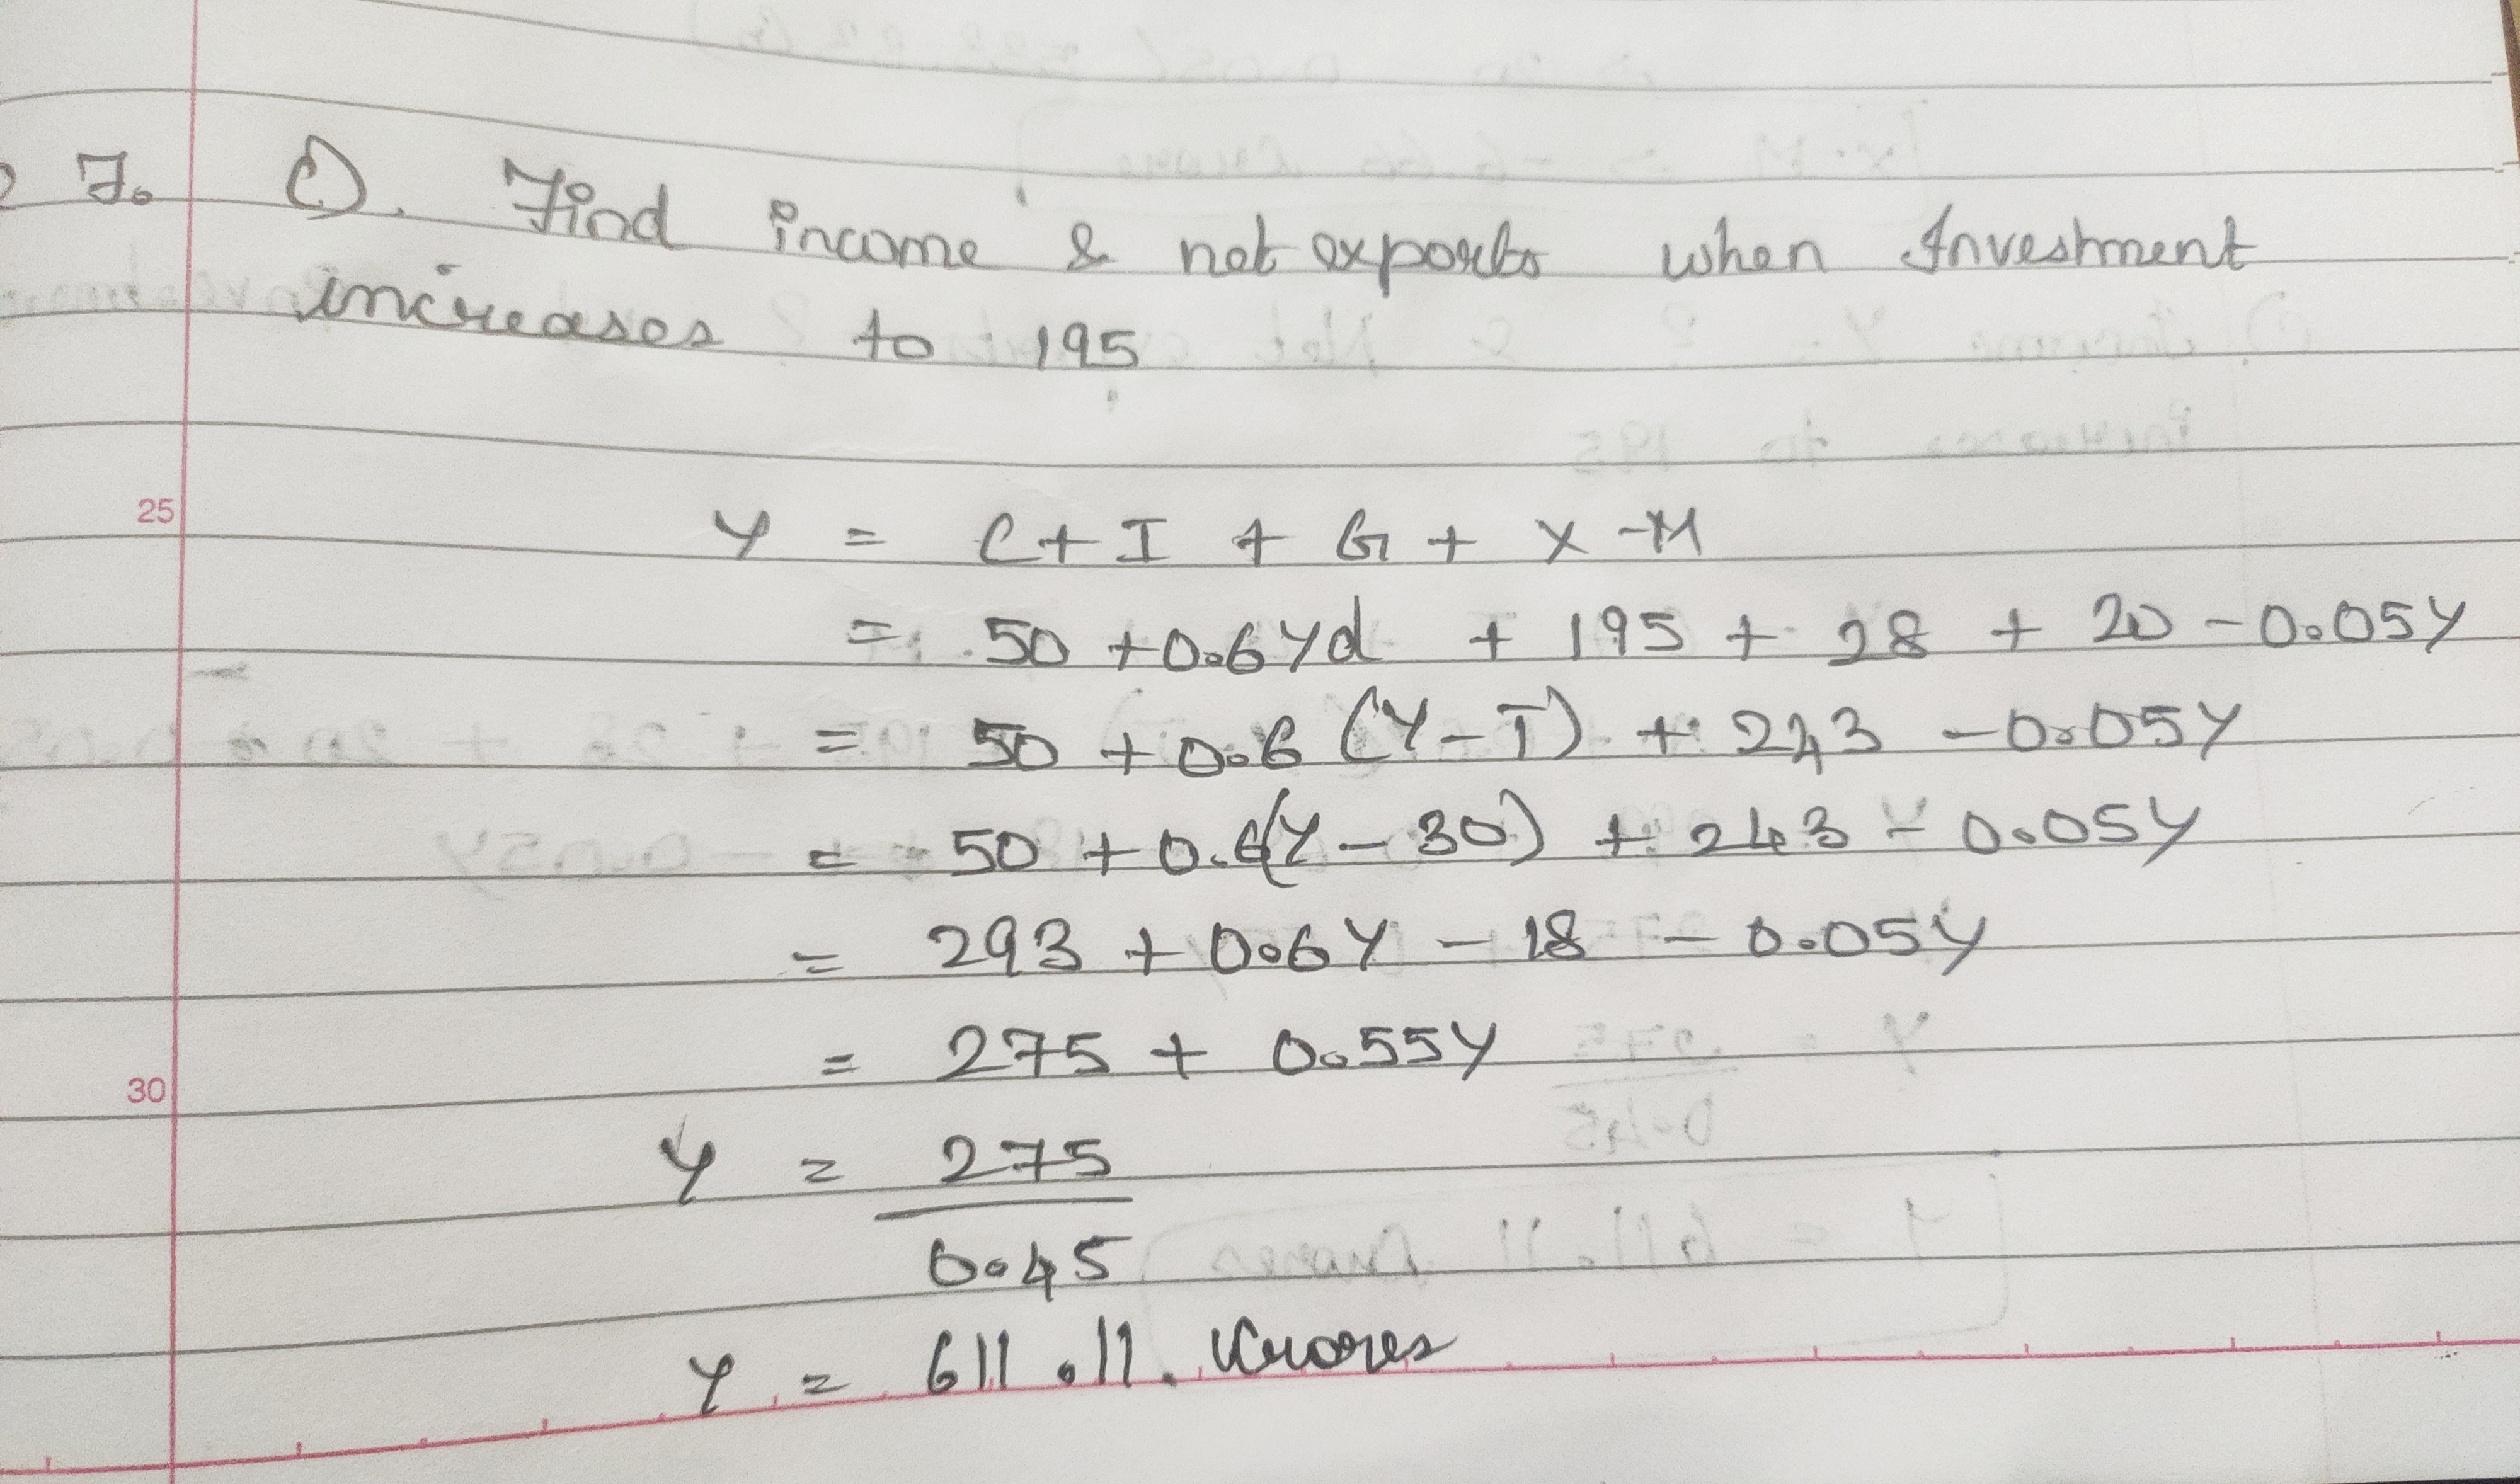 7. C). Find income & net exports when Investment
increases to 195
25
Y = C + I + G + X - M
= 50 + 0.6Yd + 195 + 28 + 20 - 0.05Y
= 50 + 0.6 (Y - T) + 243 - 0.05Y
= 50 + 0.6(Y - 30) + 243 - 0.05Y
= 293 + 0.6Y - 18 - 0.05Y
= 275 + 0.55Y
30
Y = 275
0.45
Y = 611.11. Crores